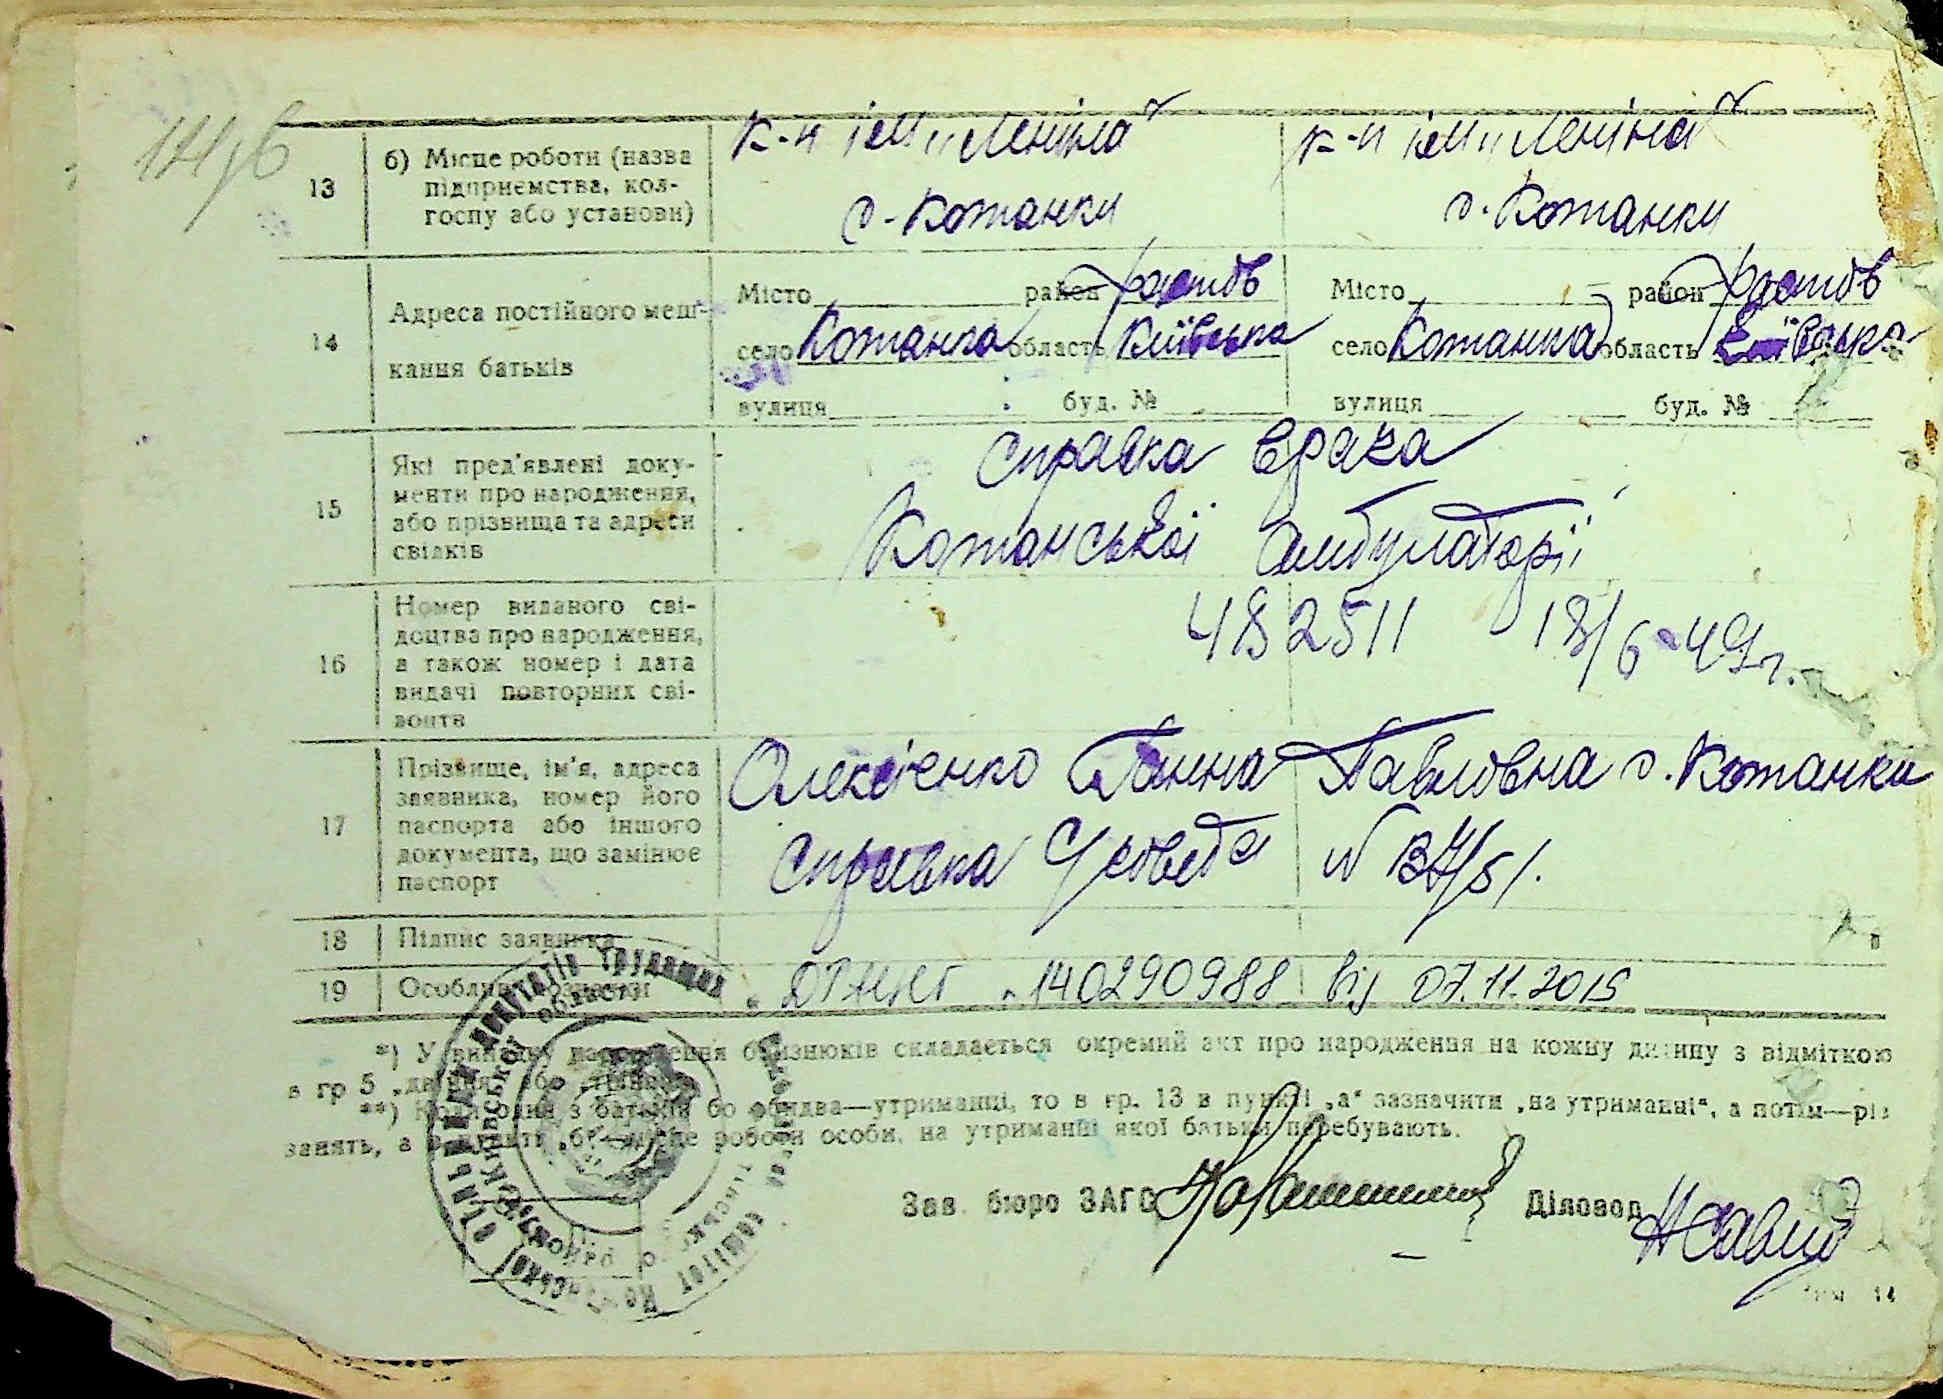 13
б) Місце роботи (назва
підприємства, кол-
госпу або установи)
к-п ім „Леніна"
с. Кожанки
к-п ім „Леніна"
с. Кожанки
14
Адреса постійного меш-
кання батьків
Місто район Фастів
село Кожанка область Київська
вулиця буд. №
Місто район Фастів
село Кожанка область Київська
вулиця буд. №
15
Які пред'явлені доку-
менти про народження,
або прізвища та адреси
свідків
Справка врача
Кожанської амбулаторії
16
Номер виданого сві-
доцтва про народження,
а також номер і дата
видачі повторних сві-
доцтв
482511 18/6-49 г.
17
Прізвище, ім'я, адреса
заявника, номер його
паспорта або іншого
документа, що замінює
паспорт
Олексієнко Ганна Павловна с. Кожанки
Справка С/совета №
18
Підпис заявника
19
Особливі
140290988 від 07.11.2015
*) У випадку народження близнюків складається окремий акт про народження на кожну дитину з відміткою
в гр 5
**) Коли один з батьків або обидва—утриманці, то в гр. 13 в пункті „а" зазначити „на утриманні", а потім—рід
занять, а в пункті „б"—місце роботи особи, на утриманні якої батьки перебувають.
Зав. бюро ЗАГС
Діловод